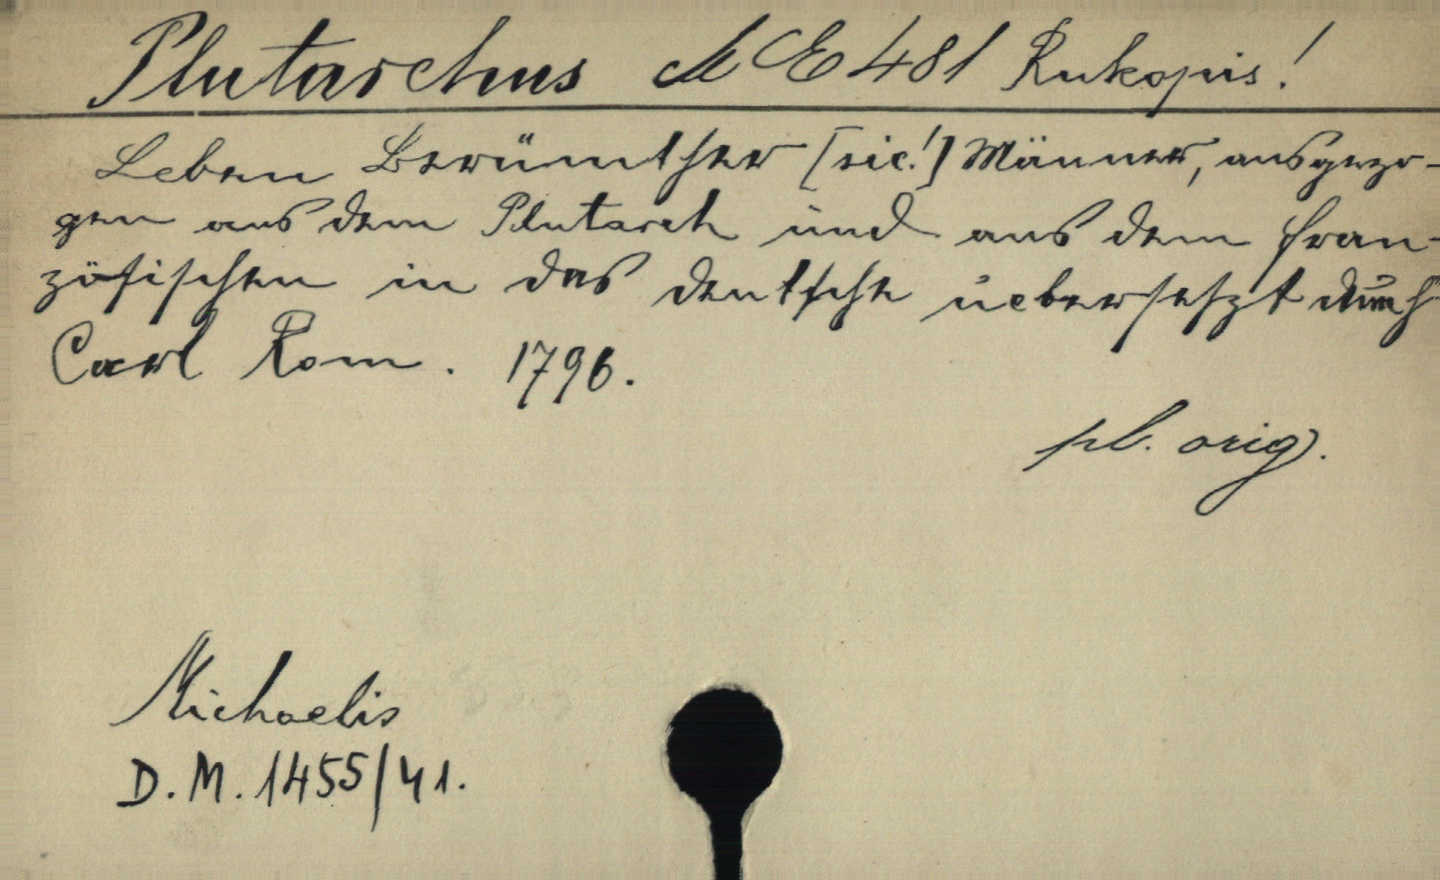 Plutarchus M E 481 Rukopis!
Leben Berümther [sic!] Männer, ausgezo-
gen aus dem Plutarch und aus dem fran-
zösischen in das deutsche uebersetzt durch
Carl Rom. 1796.
pl. orig.
Michaelis
D. M. 1455/41.